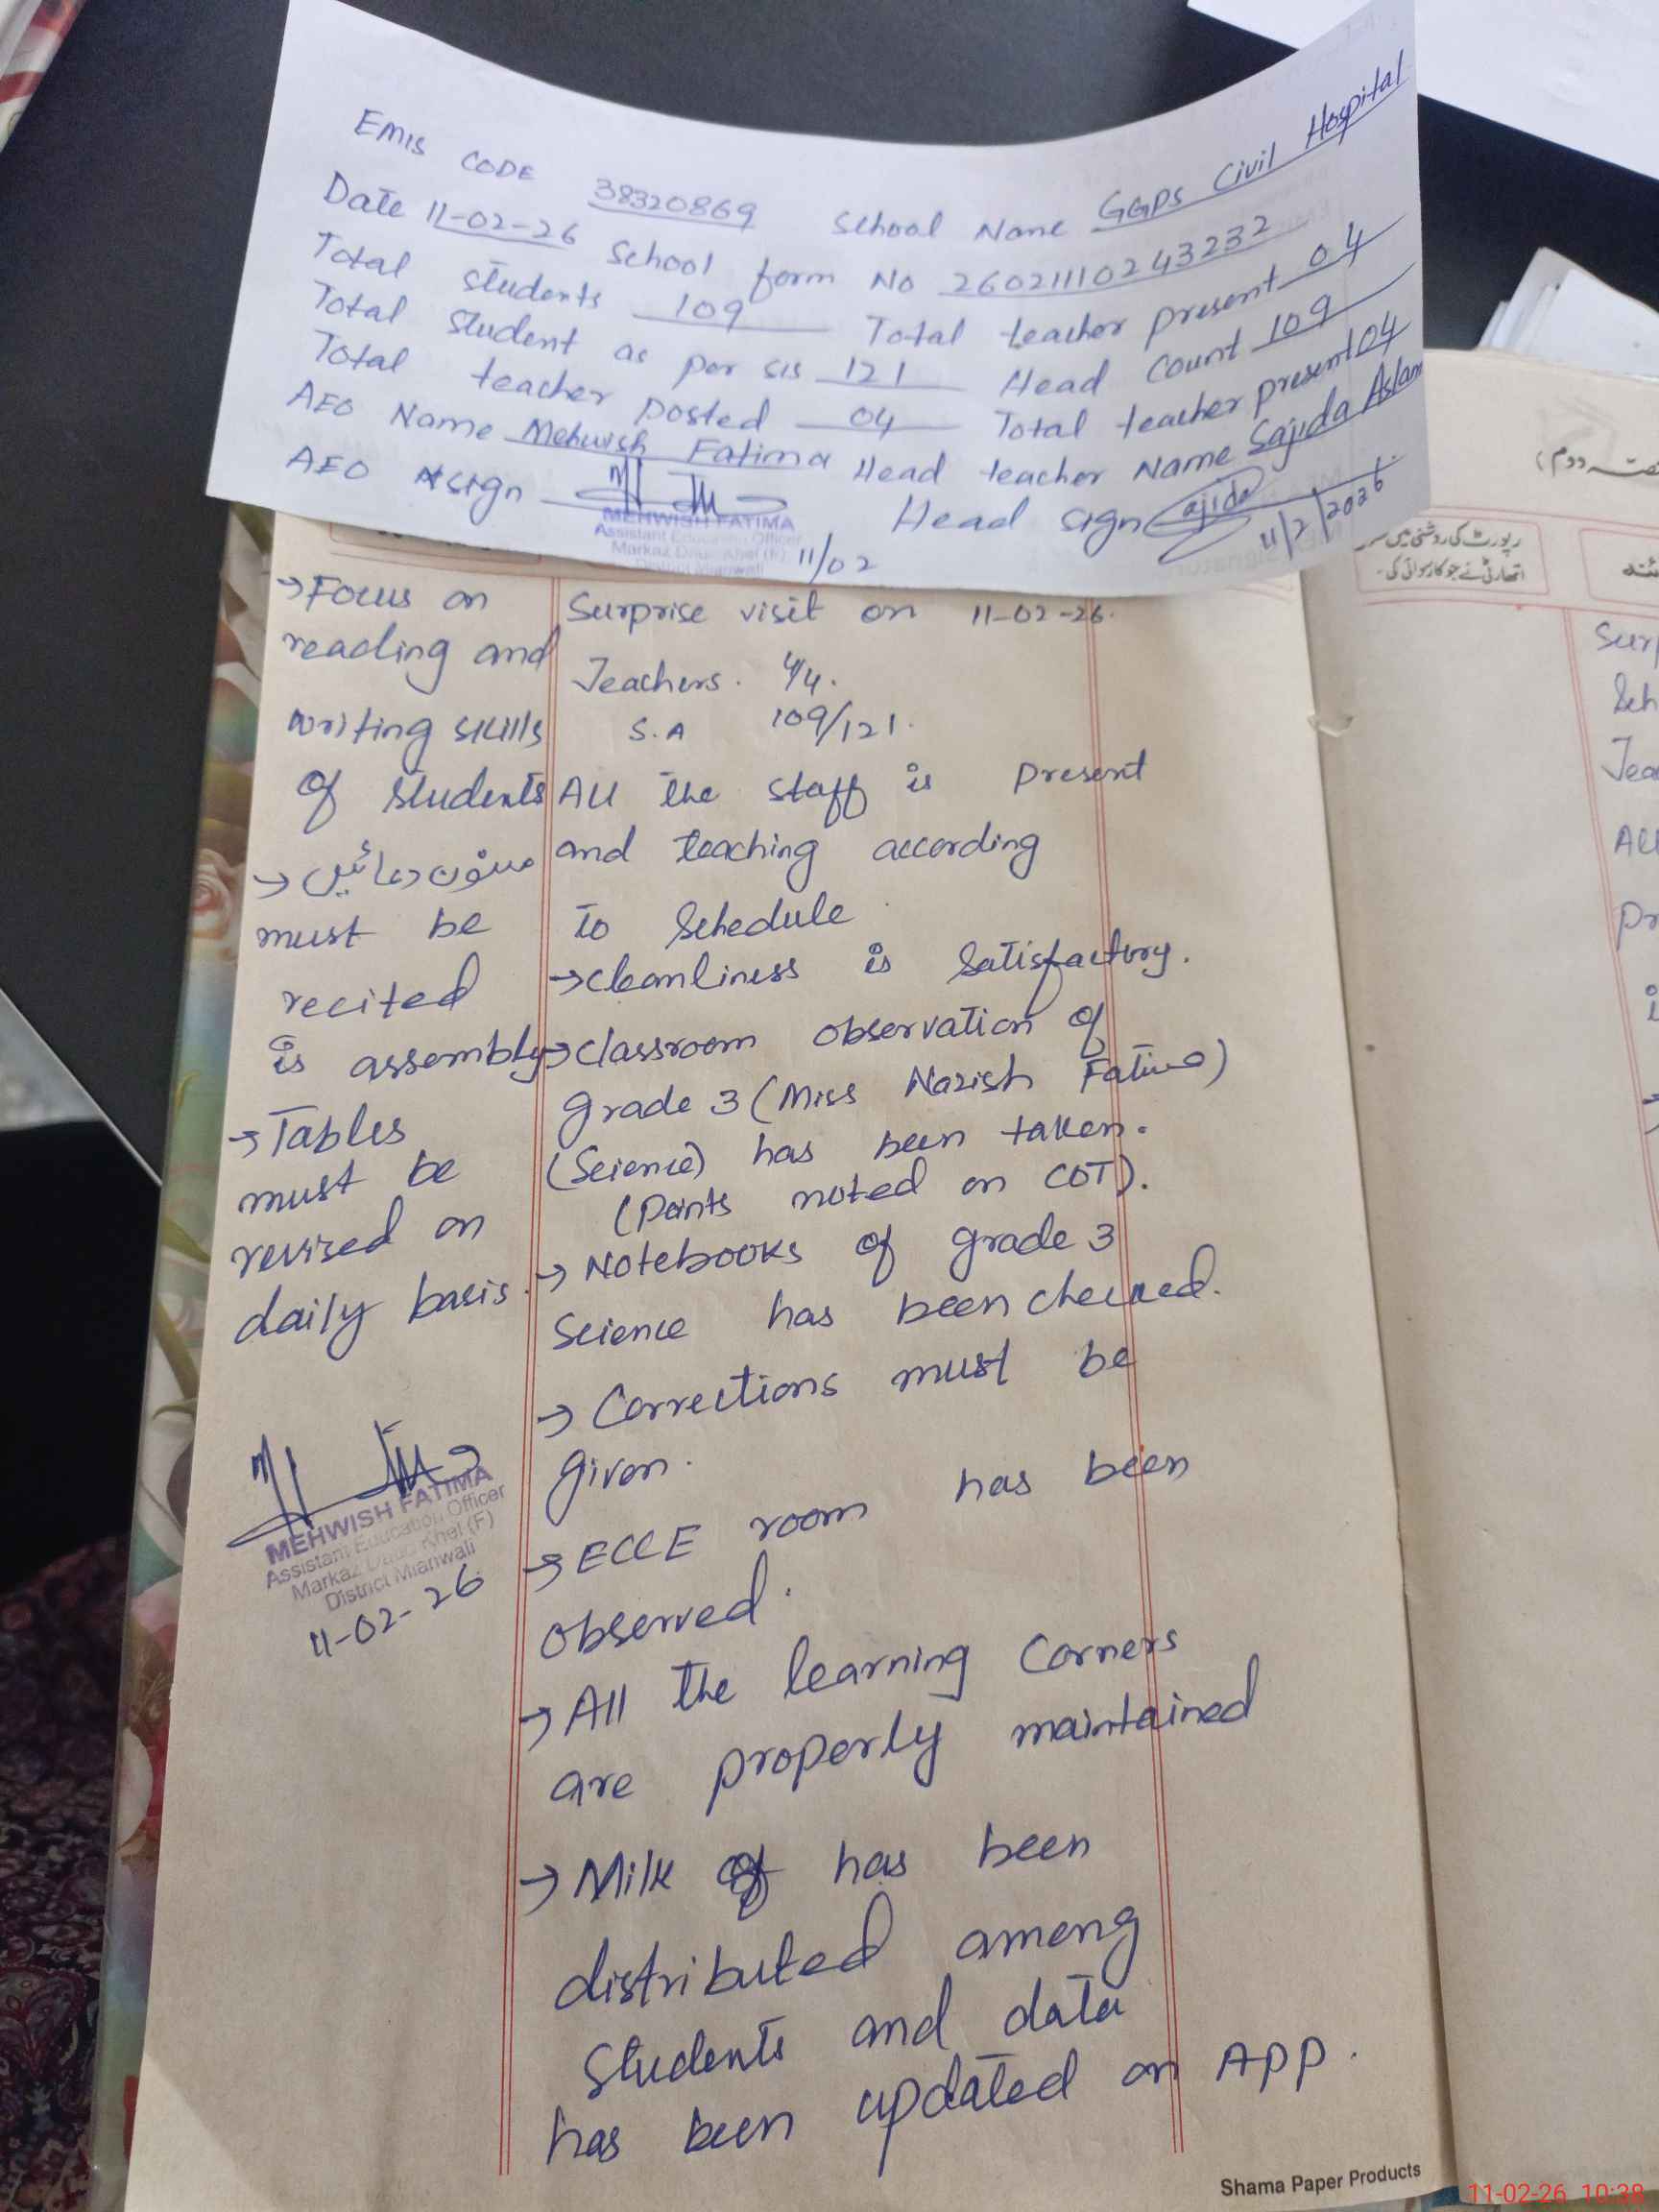 EMIS CODE 38320869 School Name GGPS Civil Hospital
Date 11-02-26 School form No 26021110243232
Total students 109 Total teacher present 04
Total student as per sis 121 Head Count 109
Total teacher posted 04 Total teacher present 04
AEO Name Mehwish Fatima Head teacher Name Sajida Aslam
AEO sign Head sign Sajida
MEHWISH FATIMA
Assistant Education Officer
Markaz Daud Khel (F)
District Mianwali
11/02
11/2/2026
→ Focus on
reading and
writing skills
of students
→ مسنون دعائیں
must be
recited
is assembly
→ Tables
must be
revised on
daily basis.
MEHWISH FATIMA
Assistant Education Officer
Markaz Daud Khel (F)
District Mianwali
11-02-26
Surprise visit on 11-02-26.
Teachers. 4/4.
S.A 109/121.
All the staff is present
and teaching according
to Schedule
→ cleanliness is Satisfactory.
→ classroom observation of
grade 3 (Miss Nazish Fatima)
(Science) has been taken.
(Points noted on COT).
→ Notebooks of grade 3
Science has been checked.
→ Corrections must be
given.
→ ECCE room has been
observed.
→ All the learning Corners
are properly maintained
→ Milk has been
distributed among
Students and data
has been updated on APP.
رپورٹ کی روشنی میں
اتھارٹی نے جو کارروائی کی۔
Shama Paper Products
11-02-26 10:38